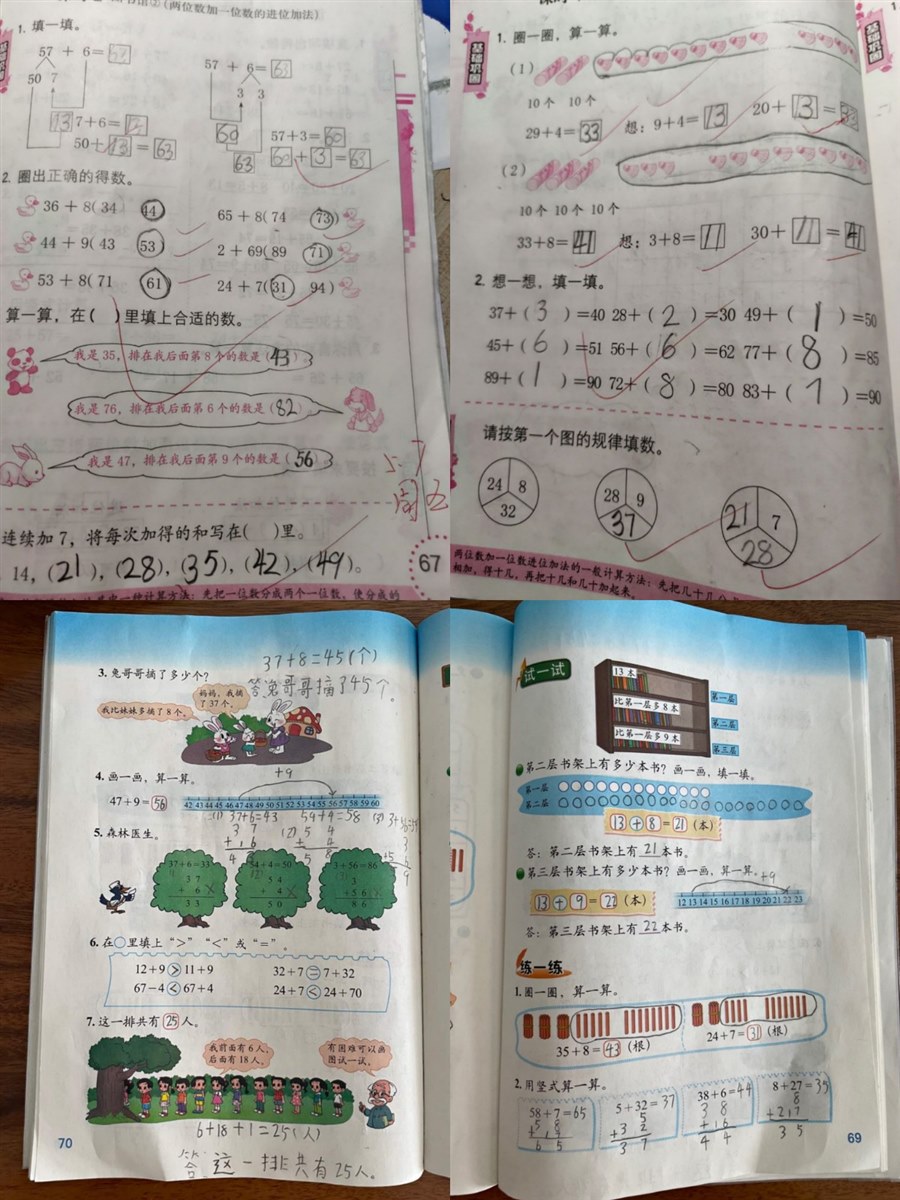 (两位数加一位数的进位加法)
1. 填一填。
57 + 6=63
50 7
13 7+6=13
50+13=63
57 + 6=63
3 3
60 57+3=60
63 60+3=63
2. 圈出正确的得数。
36 + 8(34 44
65 + 8(74 73)
44 + 9(43 53)
2 + 69(89 71)
53 + 8(71 61)
24 + 7(31 94)
算一算,在( )里填上合适的数。
我是 35, 排在我后面第 8 个的数是(43)
我是 76, 排在我后面第 6 个的数是(82)
我是 47, 排在我后面第 9 个的数是(56)
5.7
周五
连续加 7, 将每次加得的和写在( )里。
14, (21), (28), (35), (42), (49)。
67
基础巩固
1. 圈一圈,算一算。
(1)
10个 10个
29+4=33 想: 9+4=13 20+13=33
(2)
10个 10个 10个
33+8=41 想: 3+8=11 30+11=41
2. 想一想,填一填。
37+(3)=40 28+(2)=30 49+(1)=50
45+(6)=51 56+(6)=62 77+(8)=85
89+(1)=90 72+(8)=80 83+(7)=90
请按第一个图的规律填数。
24 8 32
28 9 37
21 7 28
两位数加一位数进位加法的一般计算方法: 先把几十几分
相加, 得十几, 再把十几和几十加起来。
37+8=45(个)
答兔哥哥摘了45个。
3. 兔哥哥摘了多少个?
妈妈, 我摘了 37 个。
我比妹妹多摘了 8 个。
4. 画一画, 算一算。
+9
47+9=56
42 43 44 45 46 47 48 49 50 51 52 53 54 55 56 57 58 59 60
(1) 37+6=43 54+4=58
5. 森林医生。
37+6=33
3 7
+ 6
3 3
54+4=50
5 4
+ 4
5 0
3+56=86
3
+5 6
8 6
6. 在○里填上“>”“<”或“=”。
12+9>11+9 32+7=7+32
67-4<67+4 24+7<24+70
7. 这一排共有25人。
我前面有 6 人, 后面有 18 人。
有困难可以画图试一试。
6+18+1=25(人)
答这一排共有25人。
70
试一试
13 本
比第一层多 8 本
比第一层多 9 本
第一层
第二层
第三层
第二层书架上有多少本书? 画一画, 填一填。
第一层
第二层
13+8=21(本)
答: 第二层书架上有21本书。
第三层书架上有多少本书? 画一画, 算一算。
+9
13+9=22(本)
12 13 14 15 16 17 18 19 20 21 22 23
答: 第三层书架上有22本书。
练一练
1. 圈一圈, 算一算。
35+8=43(根)
24+7=31(根)
2. 用竖式算一算。
58+7=65
5+32=37
38+6=44
8+27=35
69